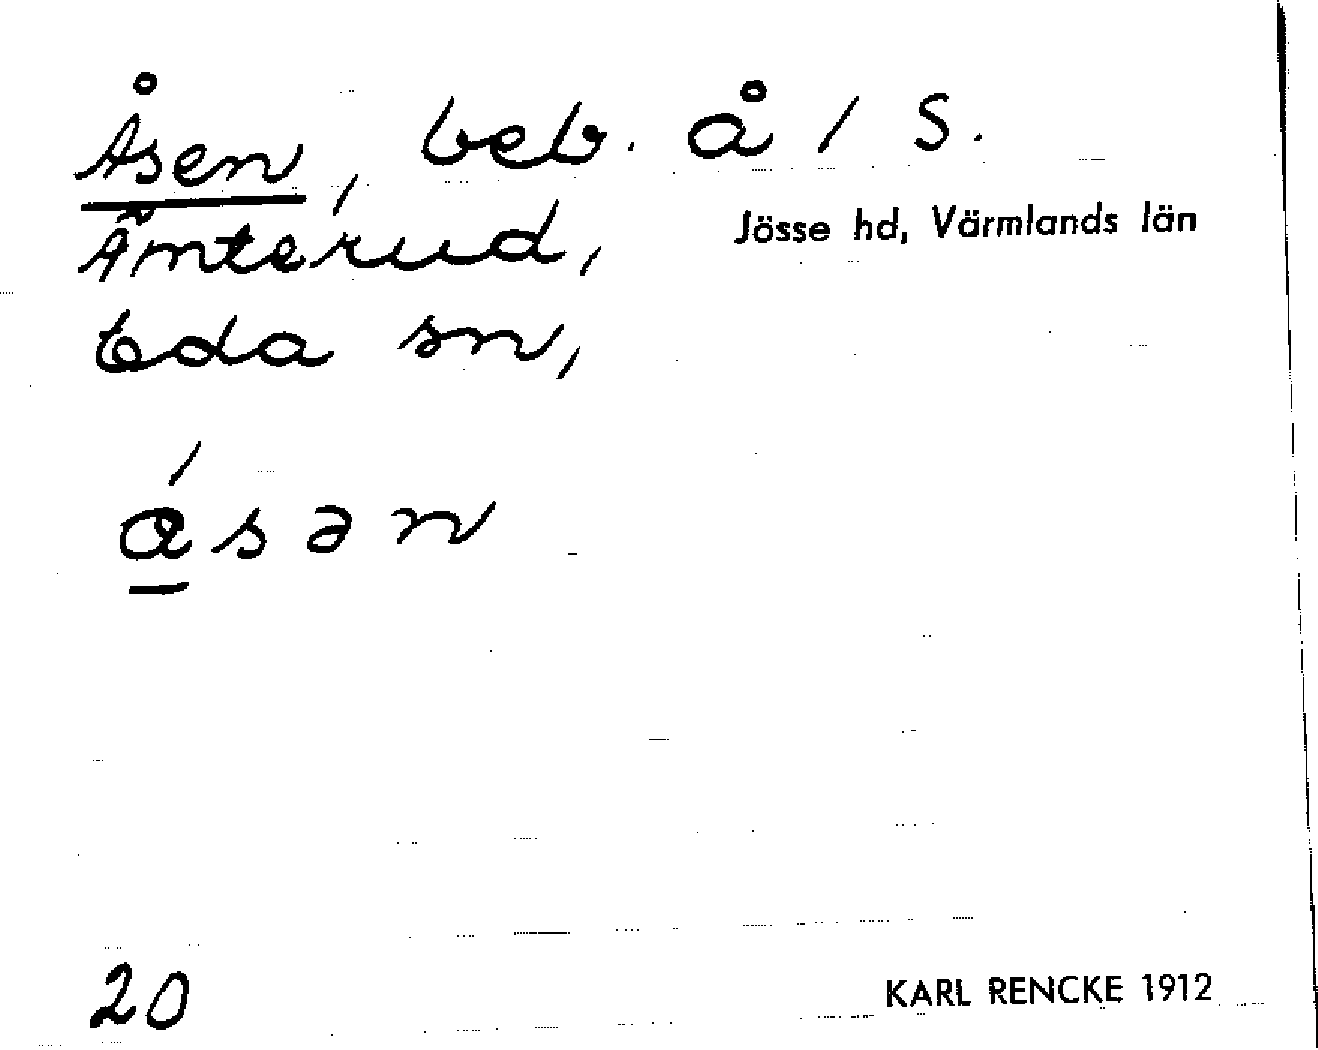 Åsen, beb. å 1 S.
Åmterud, Jösse hd, Värmlands län
Eda sn,
ásən
20 KARL RENCKE 1912